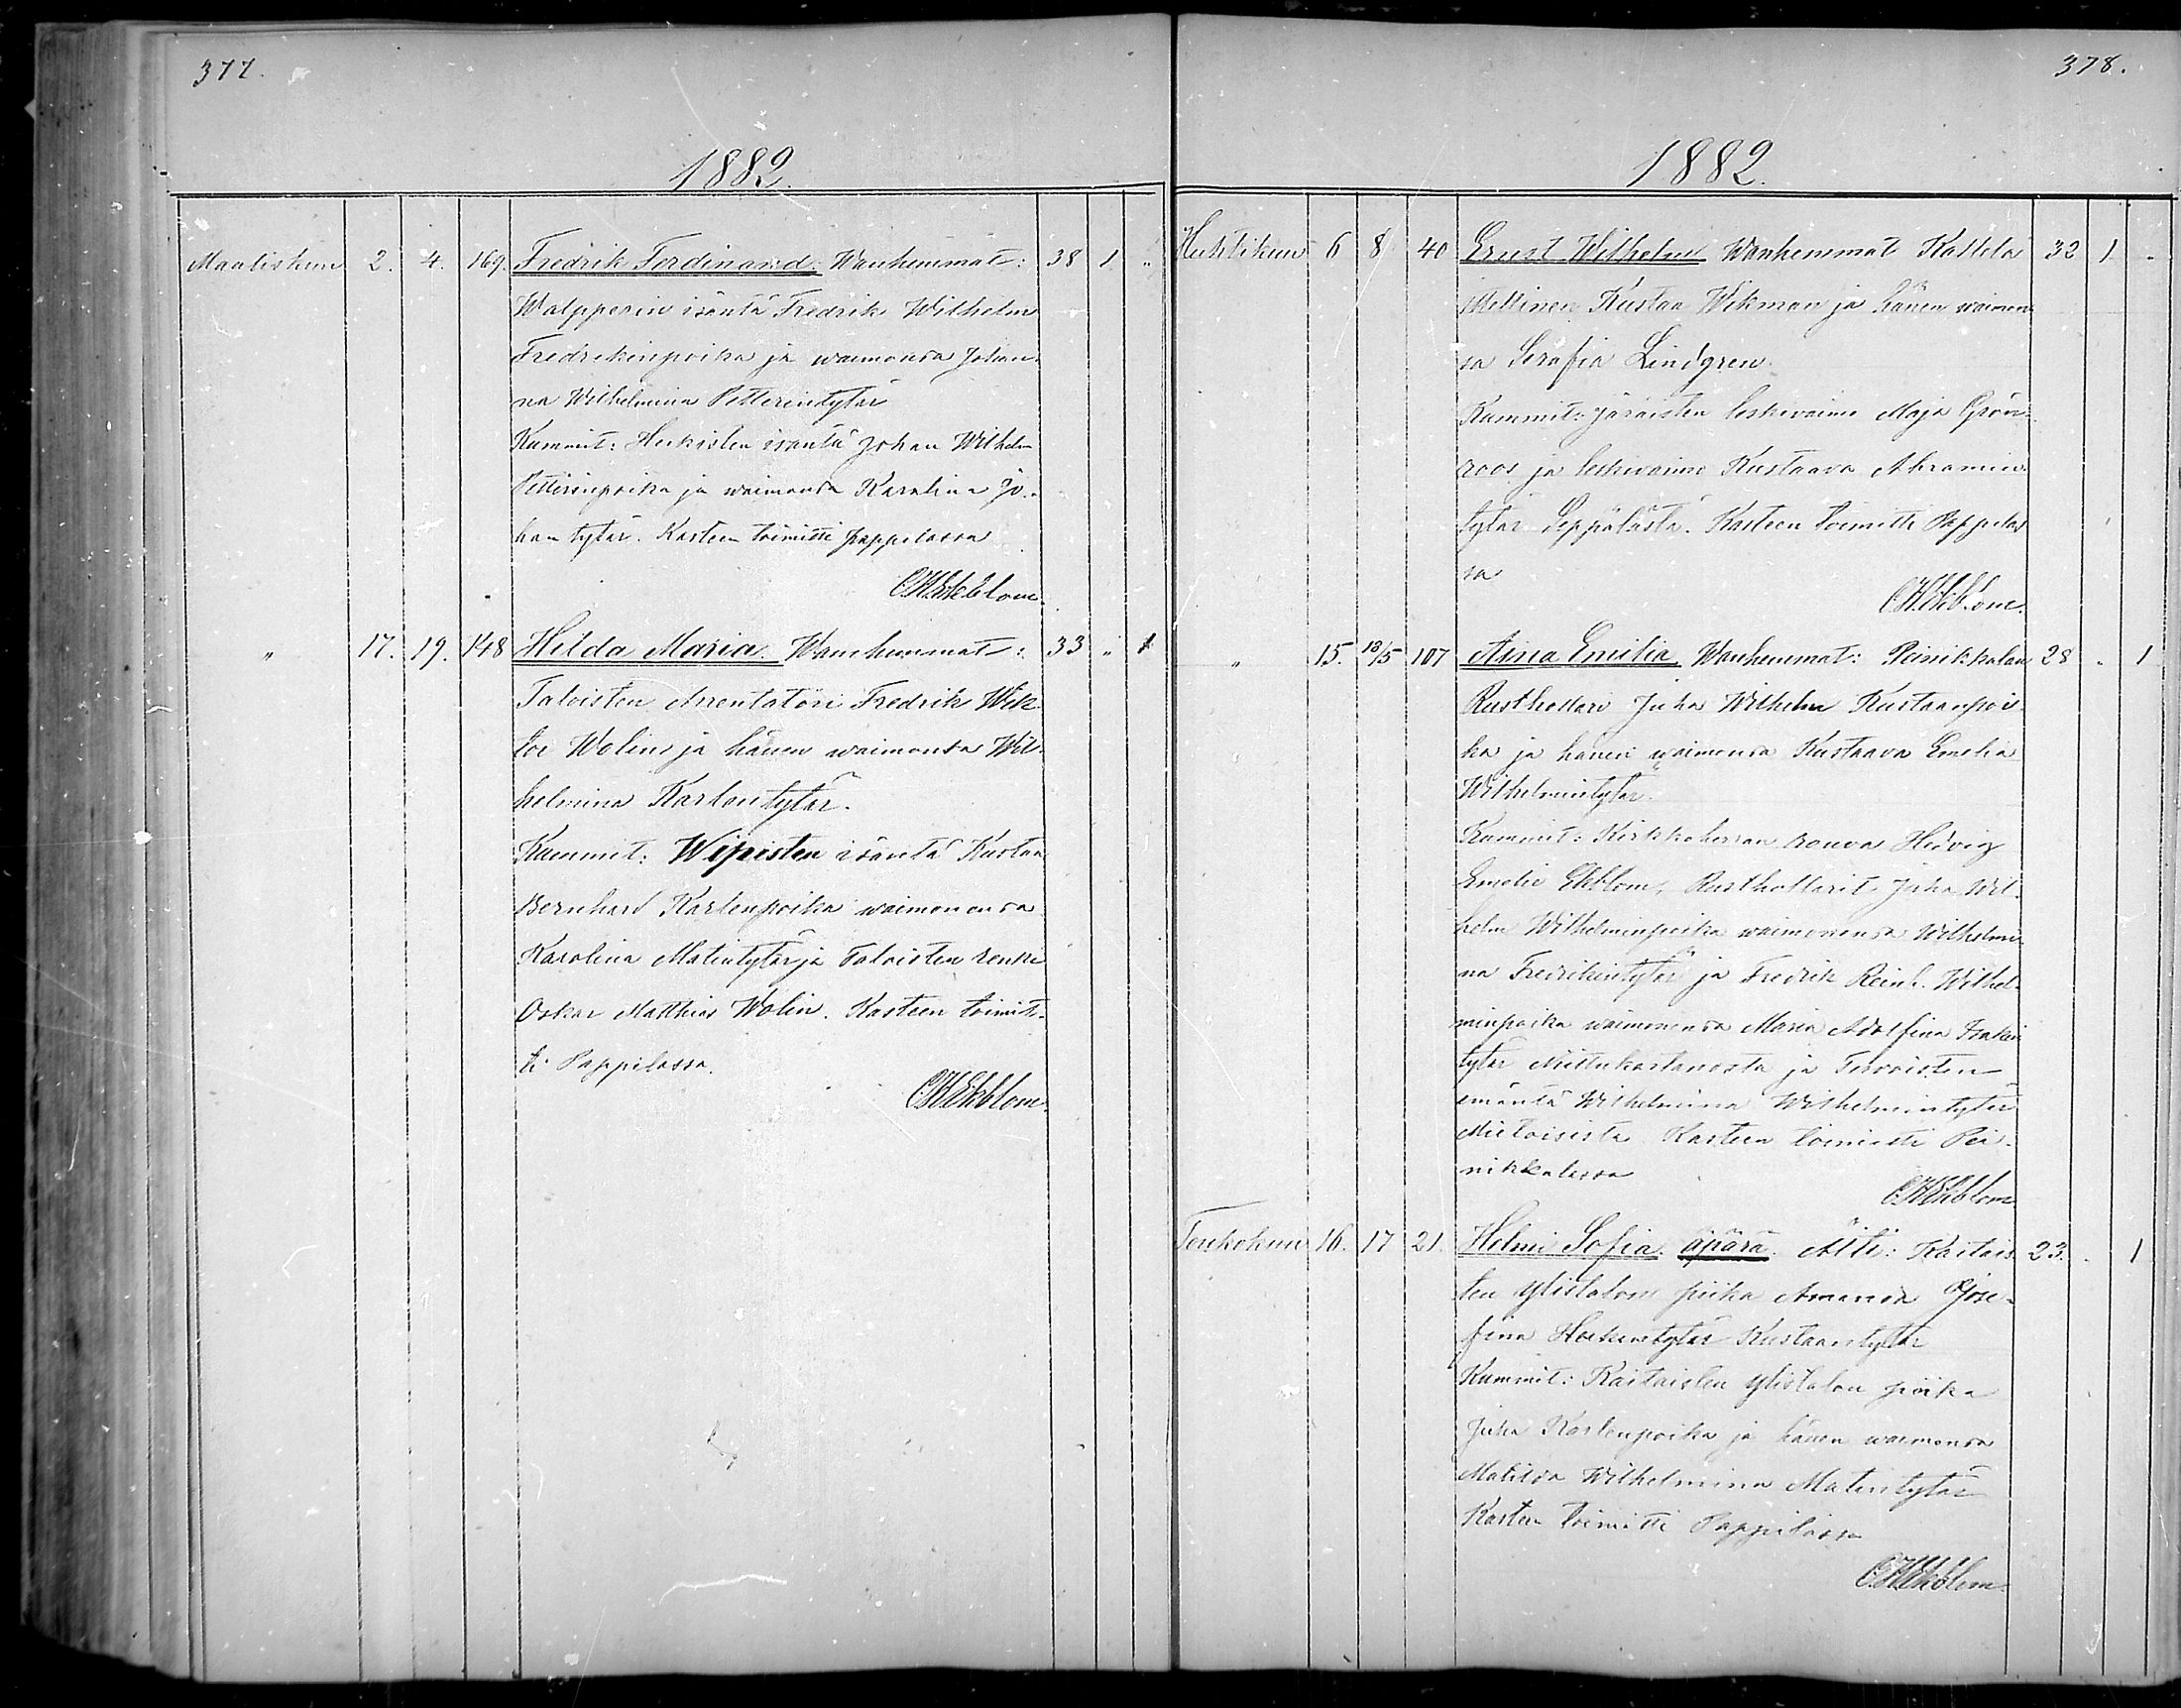 377.
1882.
Maaliskuu 2. 4. 169. Fredrik Ferdinand. Wanhemmat: 38 1 "
Walpperin isäntä Fredrik Wilhelm
Fredrikinpoika ja waimonsa Johan-
na Wilhelmina Petterintytär
Kummit: Heikisten isäntä Johan Wilhelm
Petterinpoika ja waimonsa Karolina Jo-
han tytär. Kasteen toimitti pappilassa
C H Ekblom.
" 17. 19. 148 Hilda Maria. Wanhemmat: 33 " 1
Taloisten Arrentatöri Fredrik Wik-
tor Wolin ja hänen waimonsa Wil-
helmina Karlontytär.
Kummit: Wipisten isäntä Kustaa
Bernhard Karlenpoika waimonensa
Karolina Matintytär ja Taloisten renki
Oskar Matthias Wolin. Kasteen toimit-
ti Pappilassa.
C H Ekblom.
378.
1882.
Huhtikuu 6 8 40 Ernst Wilhelm Wanhemmat Kattelus 32 1 "
itsellinen Kustaa Wikman ja hänen waimon
sa Serafia Lindgren.
Kummit: Järäisten leskivaimo Maja Grön-
roos ja leskivaimo Kustaava Abramin
tytär Seppälästä. Kasteen toimitti Pappilas
sa
C H Ekblom.
" 15. 18/5 107 Aina Emilia Wanhemmat: Peinikkalan 28 " 1
Rusthollari Juha Wilhelm Kustaanpoi-
ka ja hänen waimonsa Kustaava Emelia
Wilhelmintytär.
Kummit: Kirkkoherran rouva Hedvig
Emelie Ekblom, Rusthollarit Juha Wil-
helm Wilhelminpoika waimonensa Wilhelmi-
na Fredrikintytär ja Fredrik Reinh. Wilhel-
minpoika waimonensa Maria Adolfina Isakin
tytär Miettukartanosta ja Tervoisten
emäntä Wilhelmina Wilhelmintytär
Mietoisista Kasteen toimitti Pei-
nikkalassa
C H Ekblom
Toukokuu 16. 17 21. Helmi Sofia. äpärä. Äiti: Kaitais 23. " 1
ten ylistalon piika Amanda Jose-
fina Heikintytär Kustaantytär
Kummit: Kaitaisten ylistalon poika
Juha Karlenpoika ja hänen waimonsa
Matilda Wilhelmina Matintytär
Kasteen toimitti Pappilassa
C H Ekblom.